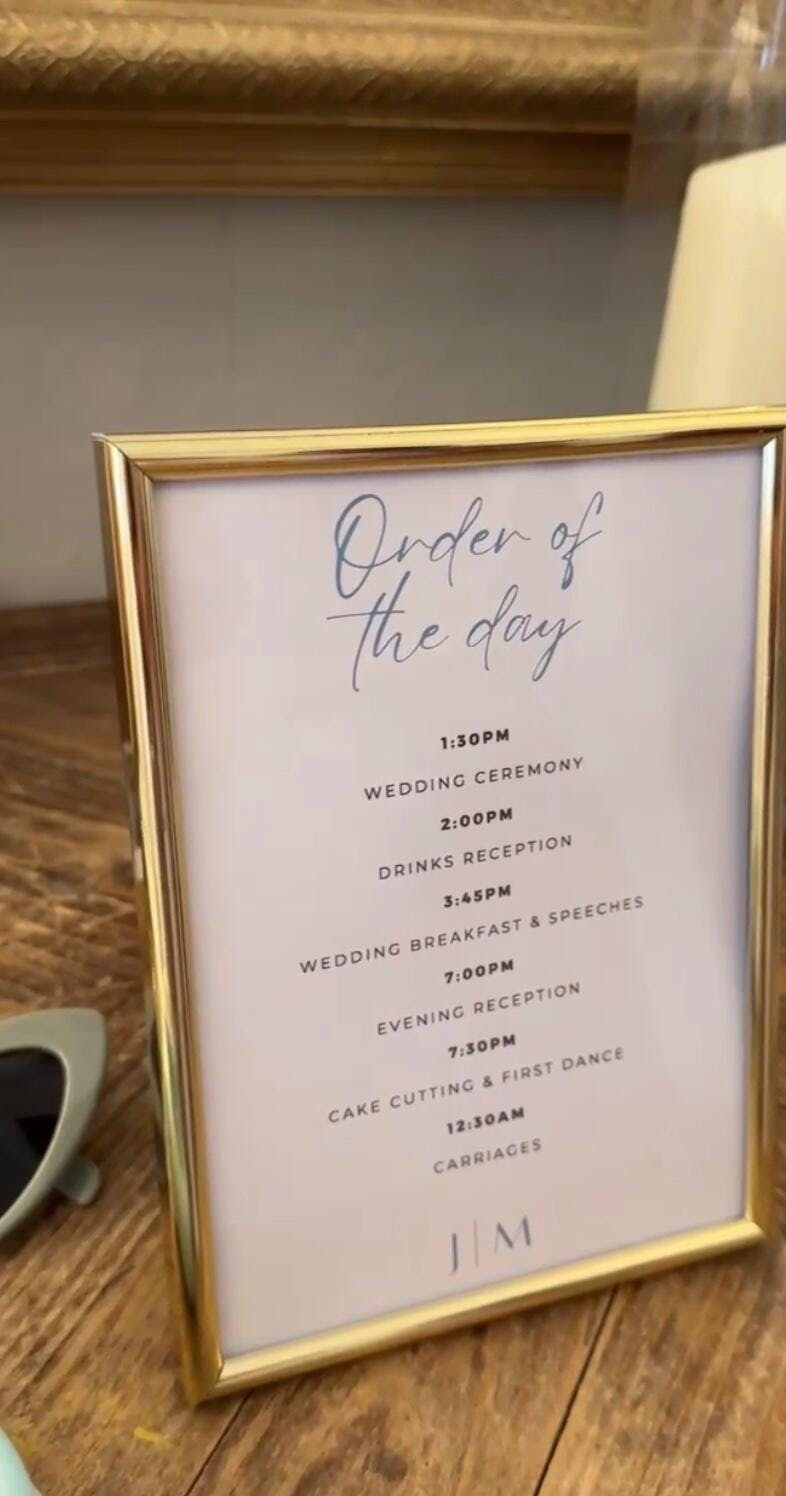 Order of
the day
1:30PM
WEDDING CEREMONY
2:00PM
DRINKS RECEPTION
3:45PM
WEDDING BREAKFAST & SPEECHES
7:00PM
EVENING RECEPTION
7:30PM
CAKE CUTTING & FIRST DANCE
12:30AM
CARRIAGES
J | M